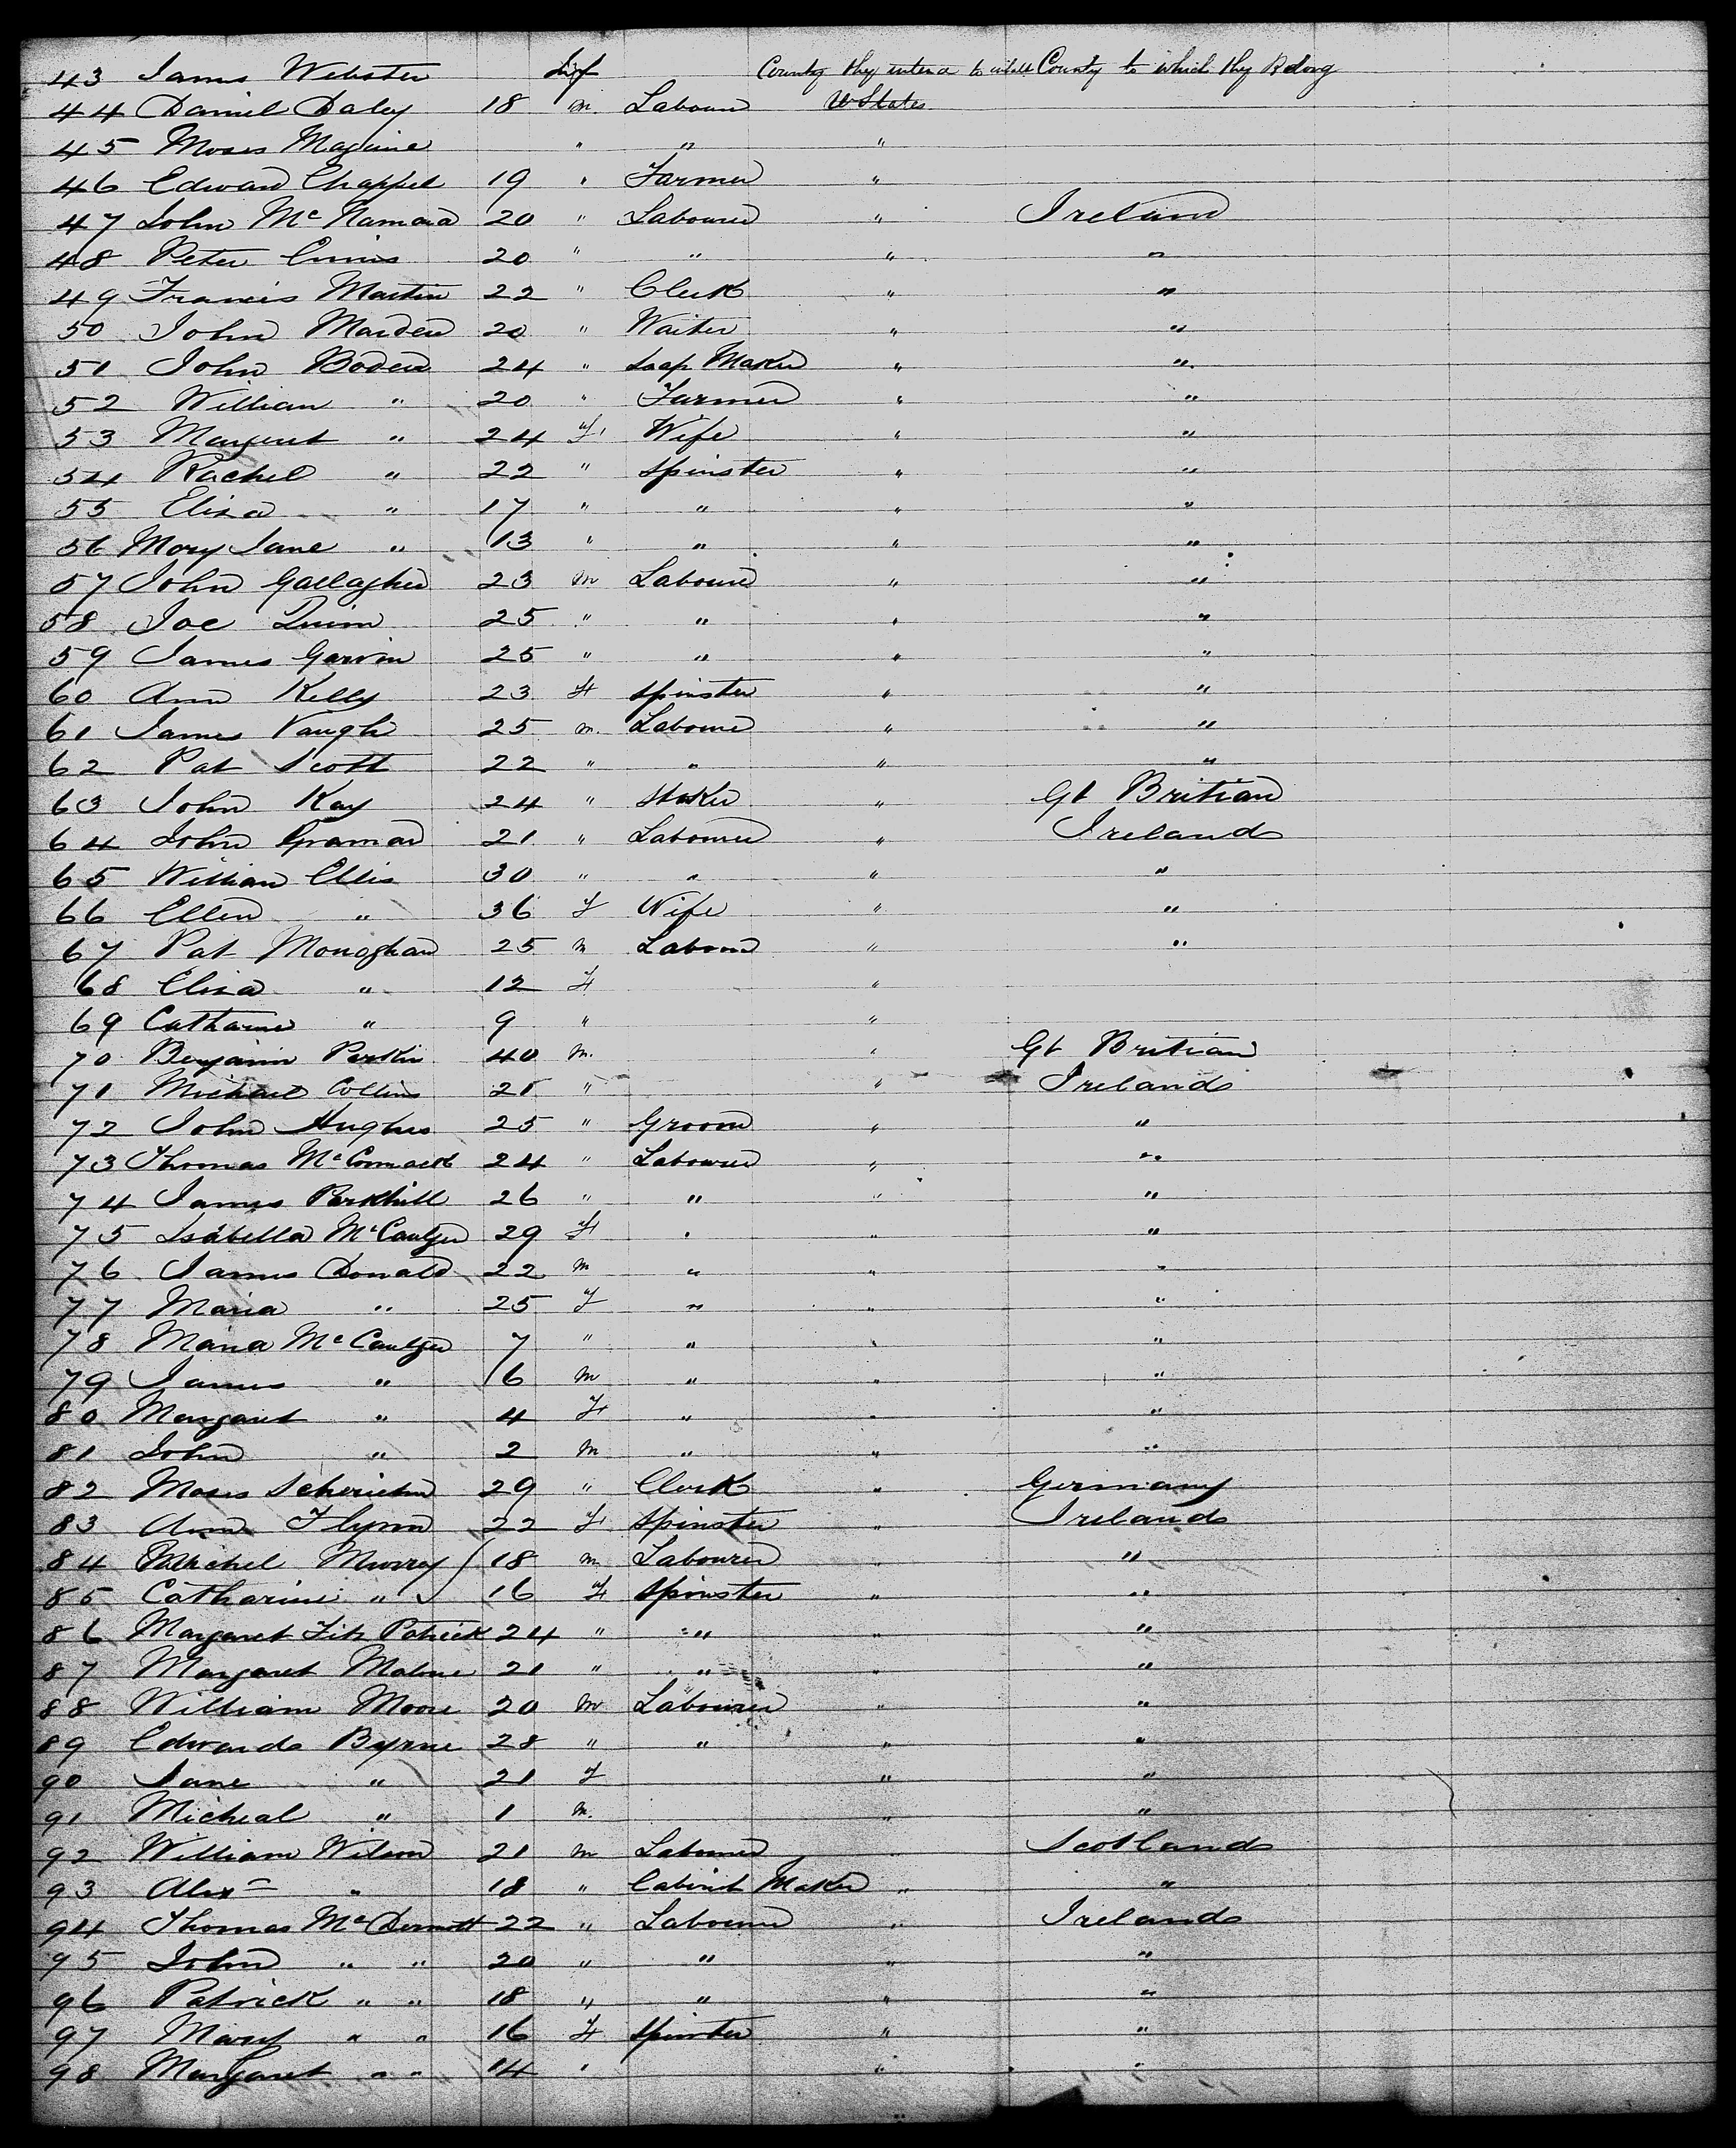 43 James Webster Sex County they intend to inhabit County to which they Belong
44 Daniel Daley 18 m. Labourer U States
45 Moses Maguire " " "
46 Edward Chappel 19 " Farmer "
47 John McNamara 20 " Labourer " Ireland
48 Peter Ennis 20 " " " "
49 Francis Martin 22 " Clerk " "
50 John Marden 20 " Waiter " "
51 John Boden 24 " Soap Maker " "
52 William " 20 " Farmer " "
53 Margaret " 24 f Wife " "
54 Rachel " 22 " Spinster " "
55 Eliza " 17 " " " "
56 Mary Jane " 13 " " " "
57 John Gallagher 23 m Labourer " "
58 Joe Quinn 25 " " " "
59 James Garvin 25 " " " "
60 Ann Kelly 23 f Spinster " "
61 James Vaugh 25 m. Labourer " "
62 Pat Scott 22 " " " "
63 John Kay 24 " Stoker " Gt Britian
64 John Gramar 21 " Labourer " Ireland
65 William Ellis 30 " " " "
66 Ellen " 36 f Wife " "
67 Pat Monoghan 25 m Labourer " "
68 Eliza " 12 f "
69 Catharine " 9 " "
70 Benjamin Parkin 40 m. " Gt Britian
71 Michael Collins 21 " " Ireland
72 John Hughes 25 " Groom " "
73 Thomas McCormack 24 " Labourer " "
74 James Parkhill 26 " " " "
75 Isabella McCaulger 29 f " " "
76 James Donald 22 m " " "
77 Maria " 25 f " " "
78 Maria McCaulger 7 " " " "
79 James " 6 m " " "
80 Margaret " 4 f " " "
81 John " 2 m " " "
82 Moses 29 " Clerk " Germany
83 Ann Flynn 22 f Spinster " Ireland
84 Michel Murray 18 m Labourer " "
85 Catharine " 16 f Spinster " "
86 Margaret Fitz Patrick 24 " " " "
87 Margaret Malone 21 " " " "
88 William Moore 20 m Labourer " "
89 Edwards Byrne 28 " " " "
90 Jane " 21 f " "
91 Micheal " 1 m. " "
92 William Wilson 21 m Labourer " Scotland
93 Alexr " 18 " Cabinet Maker " "
94 Thomas McDermott 22 " Labourer " Ireland
95 John " " 20 " " " "
96 Patrick " " 18 " " " "
97 Mary " " 16 f Spinster " "
98 Margaret " " 14 " " "